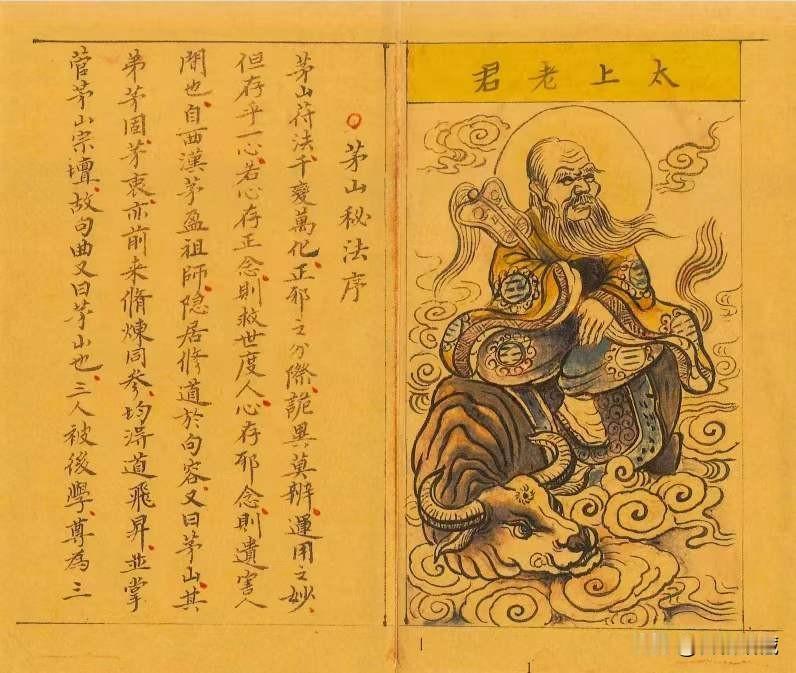 太上老君
茅山秘法序
茅山符法、千變萬化、正邪之分際、詭異莫辨、運用之妙、
但存乎一心、若心存正念、則救世度人、心存邪念、則遺害人
間也、自西漢茅盈祖師、隐居修道於句容、又曰茅山、其
弟茅固、茅衷、亦前来脩煉同参、均得道飛昇、並掌
管茅山宗壇、故句曲又曰茅山也、三人被後學、尊為三
1
1